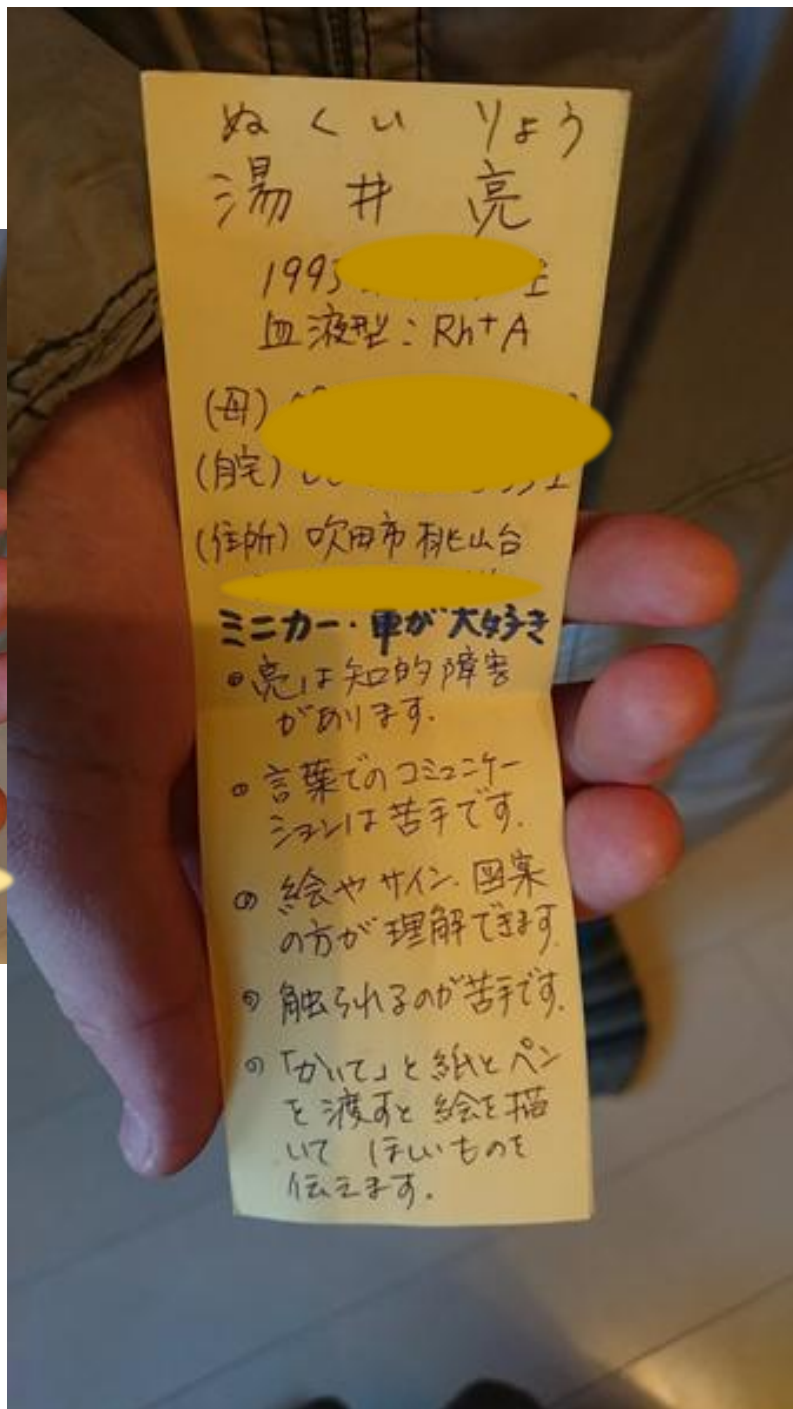 ぬくい りょう
湯井 亮
1993 生
血液型：Rh+A
(母)
(自宅)
(住所) 吹田市桃山台
ミニカー・車が大好き
・亮は知的障害
があります.
・言葉でのコミュニケー
ションは苦手です.
・絵やサイン、図案
の方が理解できます.
・触られるのが苦手です.
・「かいて」と紙とペン
を渡すと絵を描
いて ほしいものを
伝えます.